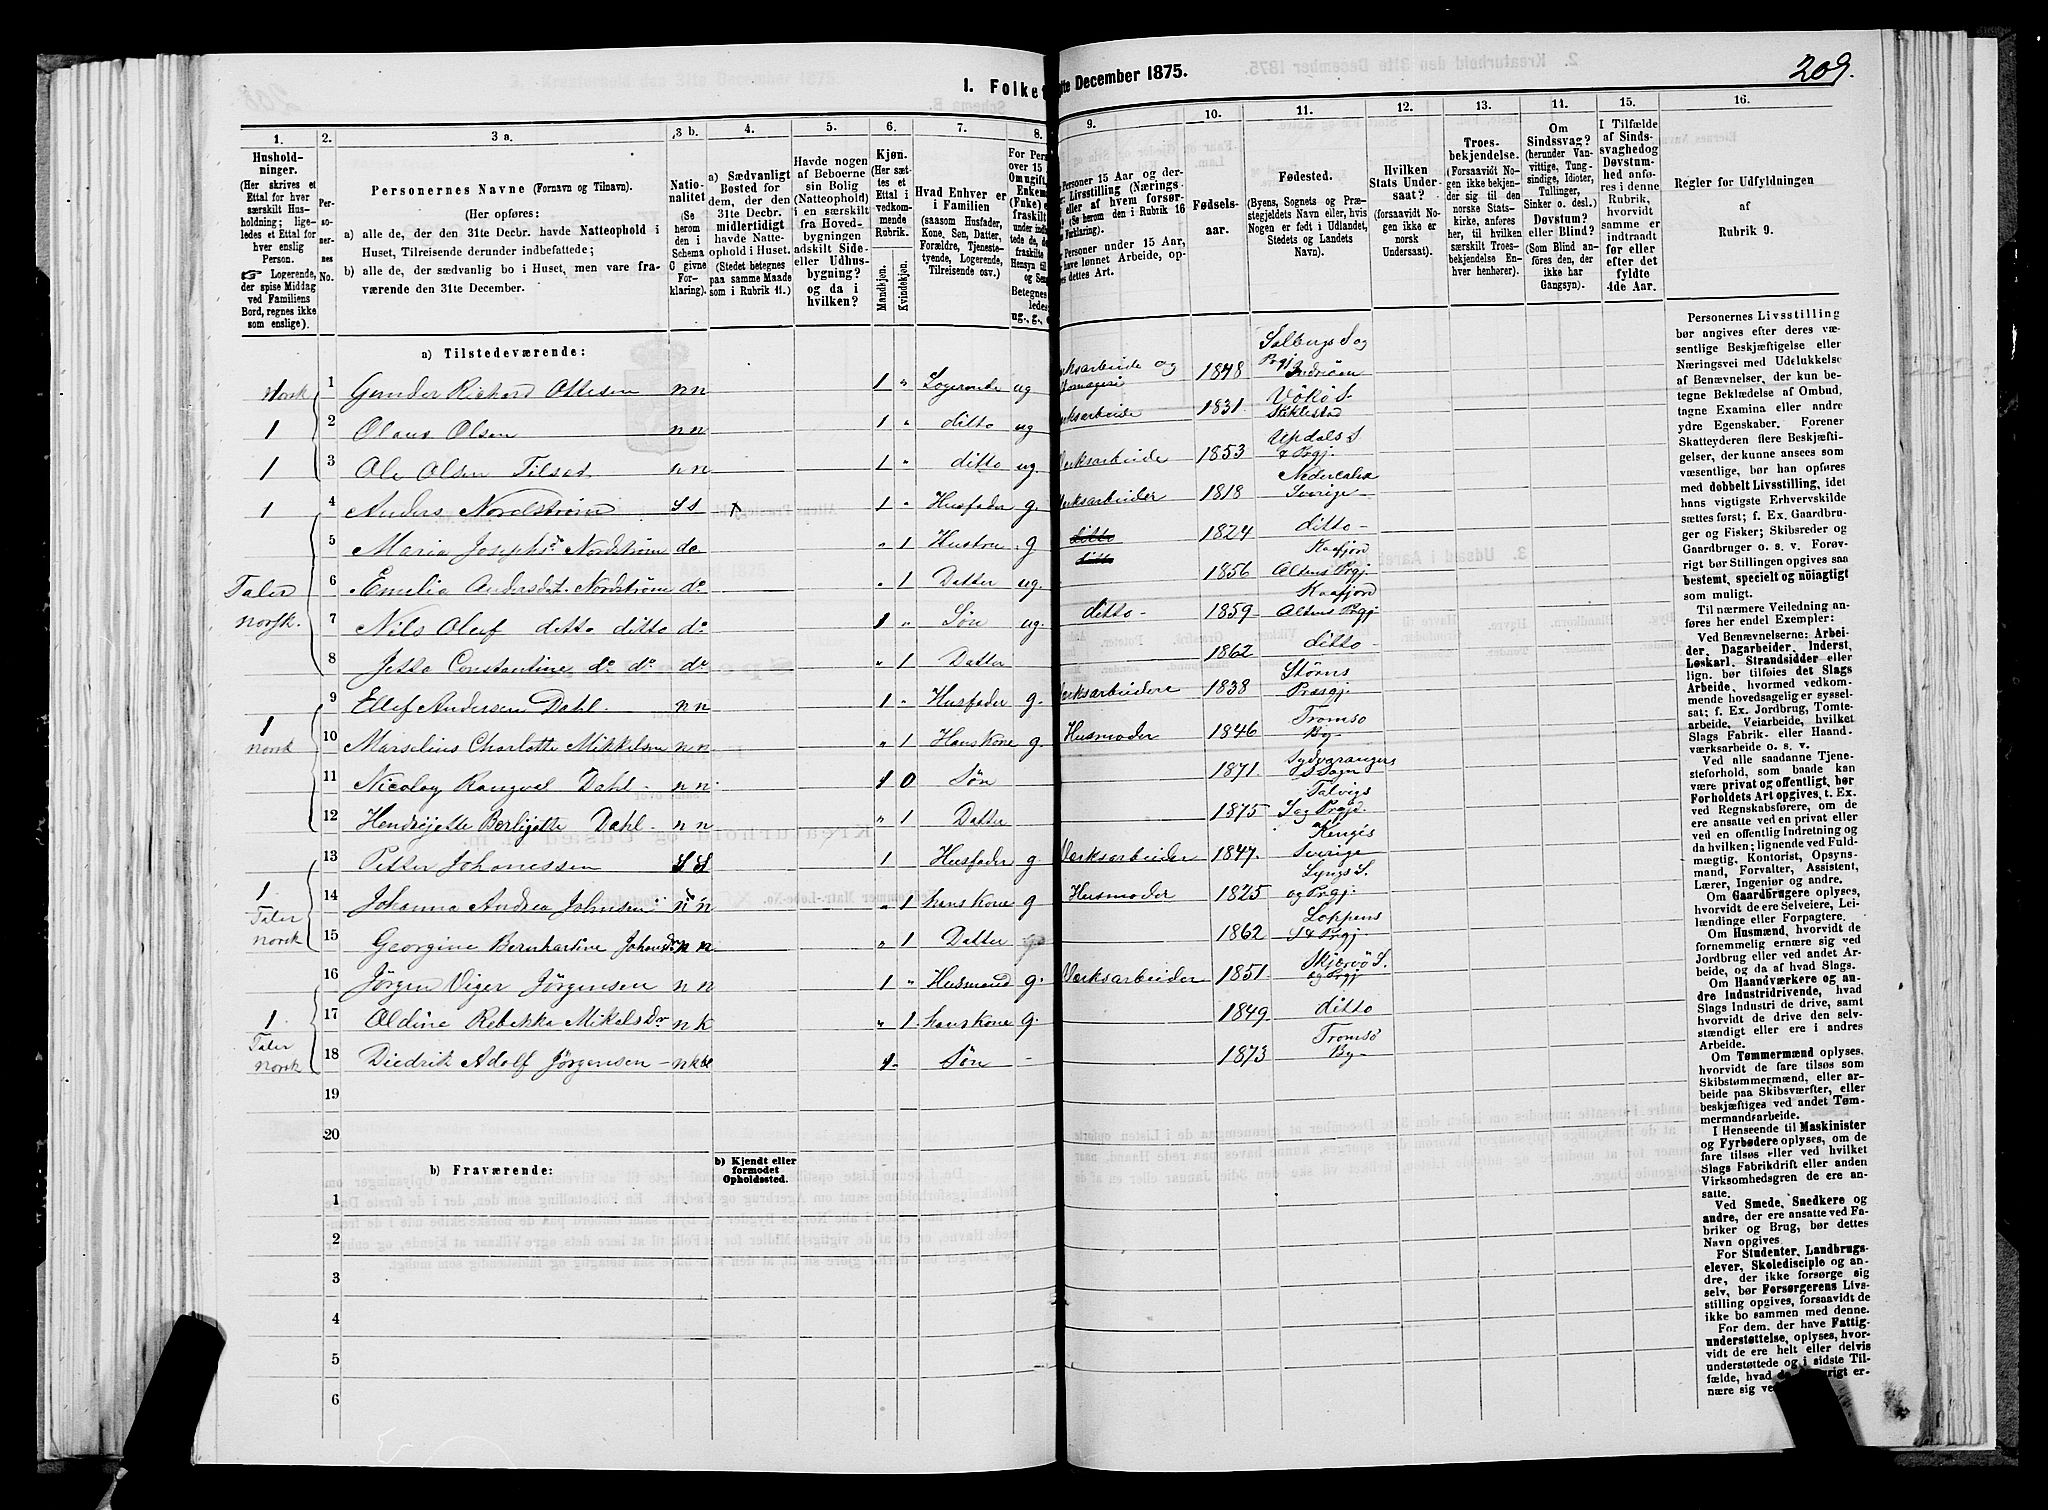 209.
I. Folket
te December 1875.
1. 2. 3 a. 3 b. 4. 5. 6. 7. 8. 9. 10. 11. 12. 13. 14. 15. 16.
Hushold-
ninger.
(Her skrives et
Ettal for hver
særskilt Hus-
holdning; lige-
ledes et Ettal for
hver enslig
Person.
☞ Logerende,
der spise Middag
ved Familiens
Bord, regnes ikke
som enslige).
Per-
so-
ner-
nes
No.
Personernes Navne (Fornavn og Tilnavn).
(Her opføres:
a) alle de, der den 31te Decbr. havde Natteophold i
Huset, Tilreisende derunder indbefattede;
b) alle de, der sædvanlig bo i Huset, men vare fra-
værende den 31te December.
Natio-
nalitet
(Se
herom
den i
Schema
C givne
For-
klaring).
a) Sædvanligt
Bosted for
dem, der den
31te Decbr.
midlertidigt
havde Natte-
ophold i Huset
(Stedet betegnes
paa samme Maade
som i Rubrik 11.)
Havde nogen
af Beboerne
sin Bolig
(Natteophold)
i en særskilt
fra Hoved-
bygningen
adskilt Side-
eller Udhus-
bygning?
og da i
hvilken?
Kjøn.
(Her sæt-
tes et
Ettal i
vedkom-
mende
Rubrik.
Mandkjøn.
Kvindekjøn.
Hvad Enhver er
i Familien
(saasom Husfader,
Kone, Søn, Datter,
Forældre, Tjeneste-
tyende, Logerende,
Tilreisende osv.)
For Pers
over 15
Omgift,
Enkem
(Enke) e
fraskilt
under in
tede de, d
fraskilte
Hensyn til
og Sen
Betegnes
ledes
ug., g., e
Personer 15 Aar og der-
Livsstilling (Nærings-
eller af hvem forsør-
(Se herom den i Rubrik 16
Forklaring).
Personer under 15 Aar,
have lønnet Arbeide, op-
dettes Art.
Fødsels-
aar.
Fødested.
(Byens, Sognets og Præ-
stegjeldets Navn eller, hvis
Nogen er født i Udlandet,
Stedets og Landets
Navn).
Hvilken
Stats Under-
saat?
(forsaavidt No-
gen ikke er
norsk
Undersaat).
Troes-
bekjendelse.
(Forsaavidt No-
gen ikke bekjen-
der sig til den
norske Stats-
kirke, anføres
her, til hvilken
særskilt Troes-
bekjendelse En-
hver henhører).
Om
Sindssvag?
(herunder Van-
vittige, Tung-
sindige, Idioter,
Tullinger,
Sinker o. desl.)
Døvstum?
eller Blind?
(Som Blind an-
føres den, der
ikke har
Gangsyn).
I Tilfælde
af Sinds-
svaghedog
Døvstum-
hed anfø-
res i denne
Rubrik,
hvorvidt
samme er
indtraadt
før eller
efter det
fyldte
4de Aar.
Regler for Udfyldningen
af
Rubrik 9.
a) Tilstedeværende:
norsk 1 Gunder Richard Ottesen n n 1 " Logerende ug 1848 Indrøen
1 2 Olaus Olsen n n 1 " ditto ug 1831 Skklestad
1 3 Ole Olsen Tilset n n 1 " ditto ug. Værksarbeide 1853 Updals S. & Prgj.
1 4 Anders Nordstrøm S S 1 " Husfader g. Værksarbeider 1818 Sverige
5 Maria Josephsd Nordstrøm do " 1 Hustru g 1824 ditto
Taler norsk. 6 Emelia Andersdat. Nordstrøm do " 1 Datter ug. 1856 Kaafjord Altens Prgj.
7 Nils Oluf ditto ditto do 1 " Søn ug. ditto 1859 Kaafjord Altens Prgj
8 Jetta Constantine do do do " 1 Datter 1862 ditto
1 norsk 9 Ellef Andersen Dahl n n 1 " Husfader g. Værksarbeidere 1838 Størens Præsgj.
10 Marselius Charlotte Mikkelsen n n " 1 Hans Kone g. Husmoder 1846 Tromsø By
11 Nicolay Rangvel Dahl n n 1 0 Søn 1871 Sydvarangers
12 Hendrijette Berlijette Dahl n n " 1 Datter 1875 Talvigs S og Prgjd.
13 Petter Johanessen S S 1 Husfader g Værksarbeider 1847 Kengis Sverige
1 Taler norsk 14 Johanna Andrea Johnsen n n " 1 hans Kone g Husmoder 1825 Lyngs S. og Prgj.
15 Georgine Bernhartine Johansdr n n " 1 Datter 1862 Loppens S & Prgj
16 Jørgen Viger Jørgensen n n 1 " Husmand g. Værksarbeider 1851 Skjervø S. og Prgj
1 Taler norsk 17 Aldine Rebekka Mikelsdr n k " 1 hans Kone g. 1849 ditto
18 Diedrik Adolf Jørgensen 1 Søn 1873 Tromsø By
19
20
b) Fraværende:
b) Kjendt eller
formodet
Opholdssted.
1
2
3
4
5
6
Personernes Livsstilling
bør angives efter deres væ-
sentlige Beskjæftigelse eller
Næringsvei med Udelukkelse
af Benævnelser, der kun be-
tegne Beklædelse af Ombud,
tagne Examina eller andre
ydre Egenskaber. Forener
Skatteyderen flere Beskjæfti-
gelser, der kunne ansees som
væsentlige, bør han opføres
med dobbelt Livsstilling, idet
hans vigtigste Erhvervskilde
sættes først; f. Ex. Gaardbru-
ger og Fisker; Skibsreder og
Gaardbruger o. s. v. Forøv-
rigt bør Stillingen opgives saa
bestemt, specielt og nøiagtigt
som muligt.
Til nærmere Veiledning an-
føres her endel Exempler:
Ved Benævnelserne: Arbei-
der, Dagarbeider, Inderst,
Løskarl, Strandsidder eller
lign. bør tilføies det Slags
Arbeide, hvormed vedkom-
mende hovedsagelig er syssel-
sat; f. Ex. Jordbrug, Tomte-
arbeide, Veiarbeide, hvilket
Slags Fabrik- eller Haand-
værksarbeide o. s. v.
Ved alle saadanne Tjene-
steforhold, som baade kan
være privat og offentligt, bør
Forholdets Art opgives, t. Ex.
ved Regnskabsførere, om de
ere ansatte ved en privat eller
ved en offentlig Indretning og
da hvilken; lignende ved Fuld-
mægtig, Kontorist, Opsyns-
mand, Forvalter, Assistent,
Lærer, Ingeniør og andre.
Om Gaardbrugere oplyses,
hvorvidt de ere Selveiere, Lei-
lændinge eller Forpagtere.
Om Husmænd, hvorvidt de
fornemmelig ernære sig ved
Jordbrug eller ved andet Ar-
beide, og da af hvad Slags.
Om Haandværkere og an-
dre Industridrivende, hvad
Slags Industri de drive, samt
hvorvidt de drive den selv-
stændigt eller ere i andres
Arbeide.
Om Tømmermænd oplyses,
hvorvidt de fare tilsøs som
Skibstømmermænd, eller ar-
beide paa Skibsværfter, eller
beskjæftiges ved andet Tøm-
mermandsarbeide.
I Henseende til Maskinister
og Fyrbødere oplyses, om de
fare tilsøs eller ved hvilket
Slags Fabrikdrift eller anden
Virksomhedsgren de ere an-
satte.
Ved Smede, Snedkere og
andre, der ere ansatte ved Fa-
briker og Brug, bør dettes
Navn opgives.
For Studenter, Landbrugs-
elever, Skoledisciple og an-
dre, der ikke forsørge sig
selv, bør Forsørgerens Livs-
stilling opgives, forsaavidt de
ikke bo sammen med denne.
For dem, der have Fattig-
understøttelse, oplyses, hvor-
vidt de ere helt eller delvis
understøttede og i sidste Til-
fælde, hvad de forøvrigt er-
nære sig ved